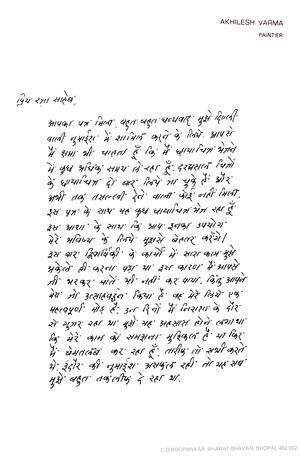 AKHILESH VARMA
PAINTER
प्रिय रज़ा साहेब,
आपका पत्र मिला, बहुत बहुत धन्यवाद मुझे दिल्ली
वाली नुमाईश में शामिल करने के लिये. आपसे
मैं क्षमा भी चाहता हूँ कि मैं छायाचित्र भेजने
में कुछ अधिक समय ले रहा हूँ. दरअसल चित्रों
के छायाचित्र दो बार लिये जा चुके हैं और
अभी तक तसल्ली देने वाली कोई नहीं मिला.
इस पत्र के साथ यह कुछ छायाचित्र भेज रहा हूँ
इस आशा के साथ कि आप इनका उपयोग
मेरे भविष्य के लिये मुझसे बेहतर करेंगे।
इस बार द्विवार्षिकी के कार्यों में सारा काम मुझे
अकेले ही करना पड़ा था इस कारण मैं आपसे
जी भरकर बातें भी नहीं कर पाया. किन्तु आपने
मेरा जो उत्साहवर्द्धन किया है वह मेरे लिये एक
महत्वपूर्ण मोड़ है. उन दिनों मैं निराशा के दौर
से गुज़र रहा था मुझे यह अहसास होने लगा था
कि मेरे काम को समझना मुश्किल है या फिर
मैं बेमतलब कर रहा हूँ. तारीफ़ तो सभी करते
थे इंदौर की नुमाईश असफल रही तो यह सब
मुझे बहुत तकलीफ़ दे रहा था.
C.O ROOPANKAR, BHARAT BHAVAN, BHOPAL 462 002